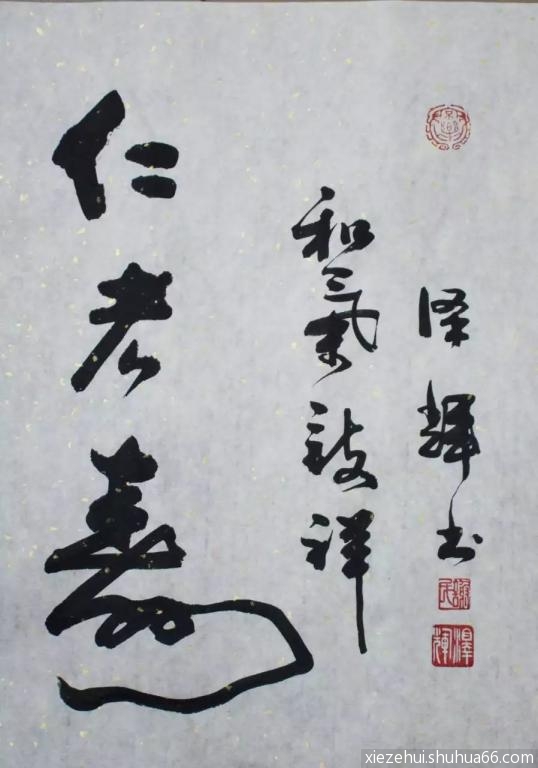 仁者壽
和氣致祥
泽輝书
謝氏
澤輝
xiezehui.shuhua66.com